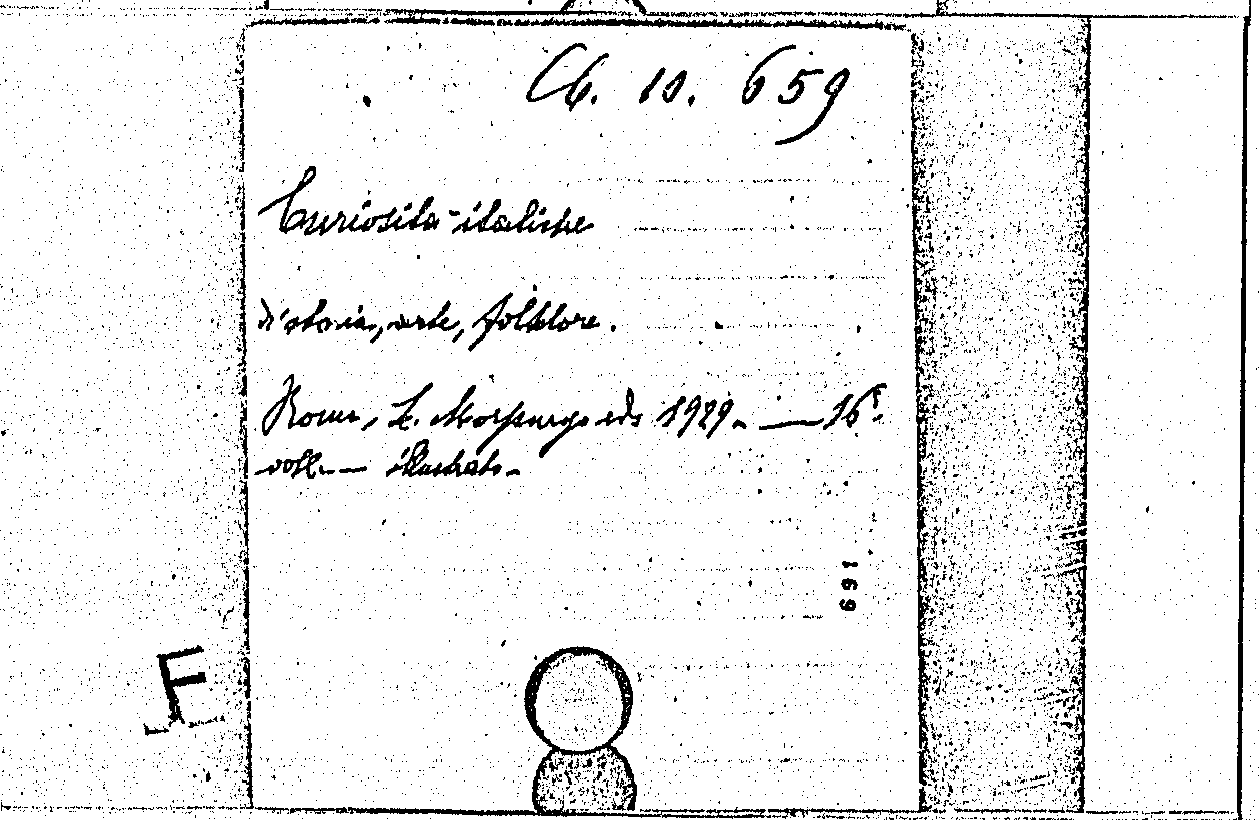 Cb. 10. 659
Curiosita italiche
di storia, arte, folklore.
Roma, L. Morpurgo ed. 1929. — 16°.
voll. — illustrato.
691
F